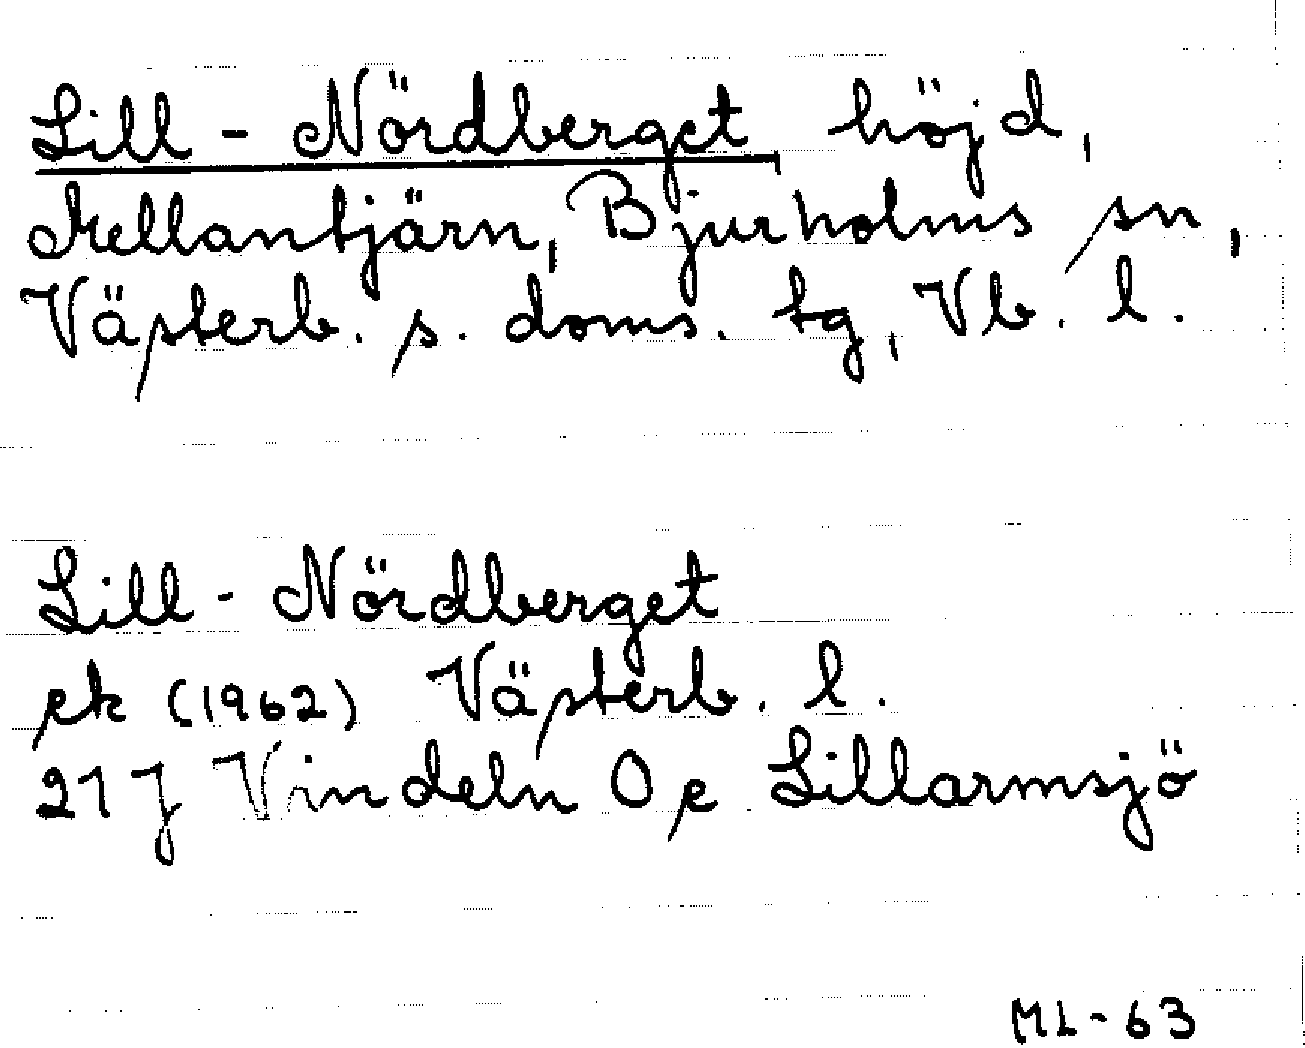 Lill-Nördberget höjd,
Mellantjärn, Bjurholms sn,
Västerb. s. doms. tg, Vb. l.
Lill-Nördberget
ek (1962) Västerb. l.
21 J Vindeln 0 e Lillarmsjö
ML-63